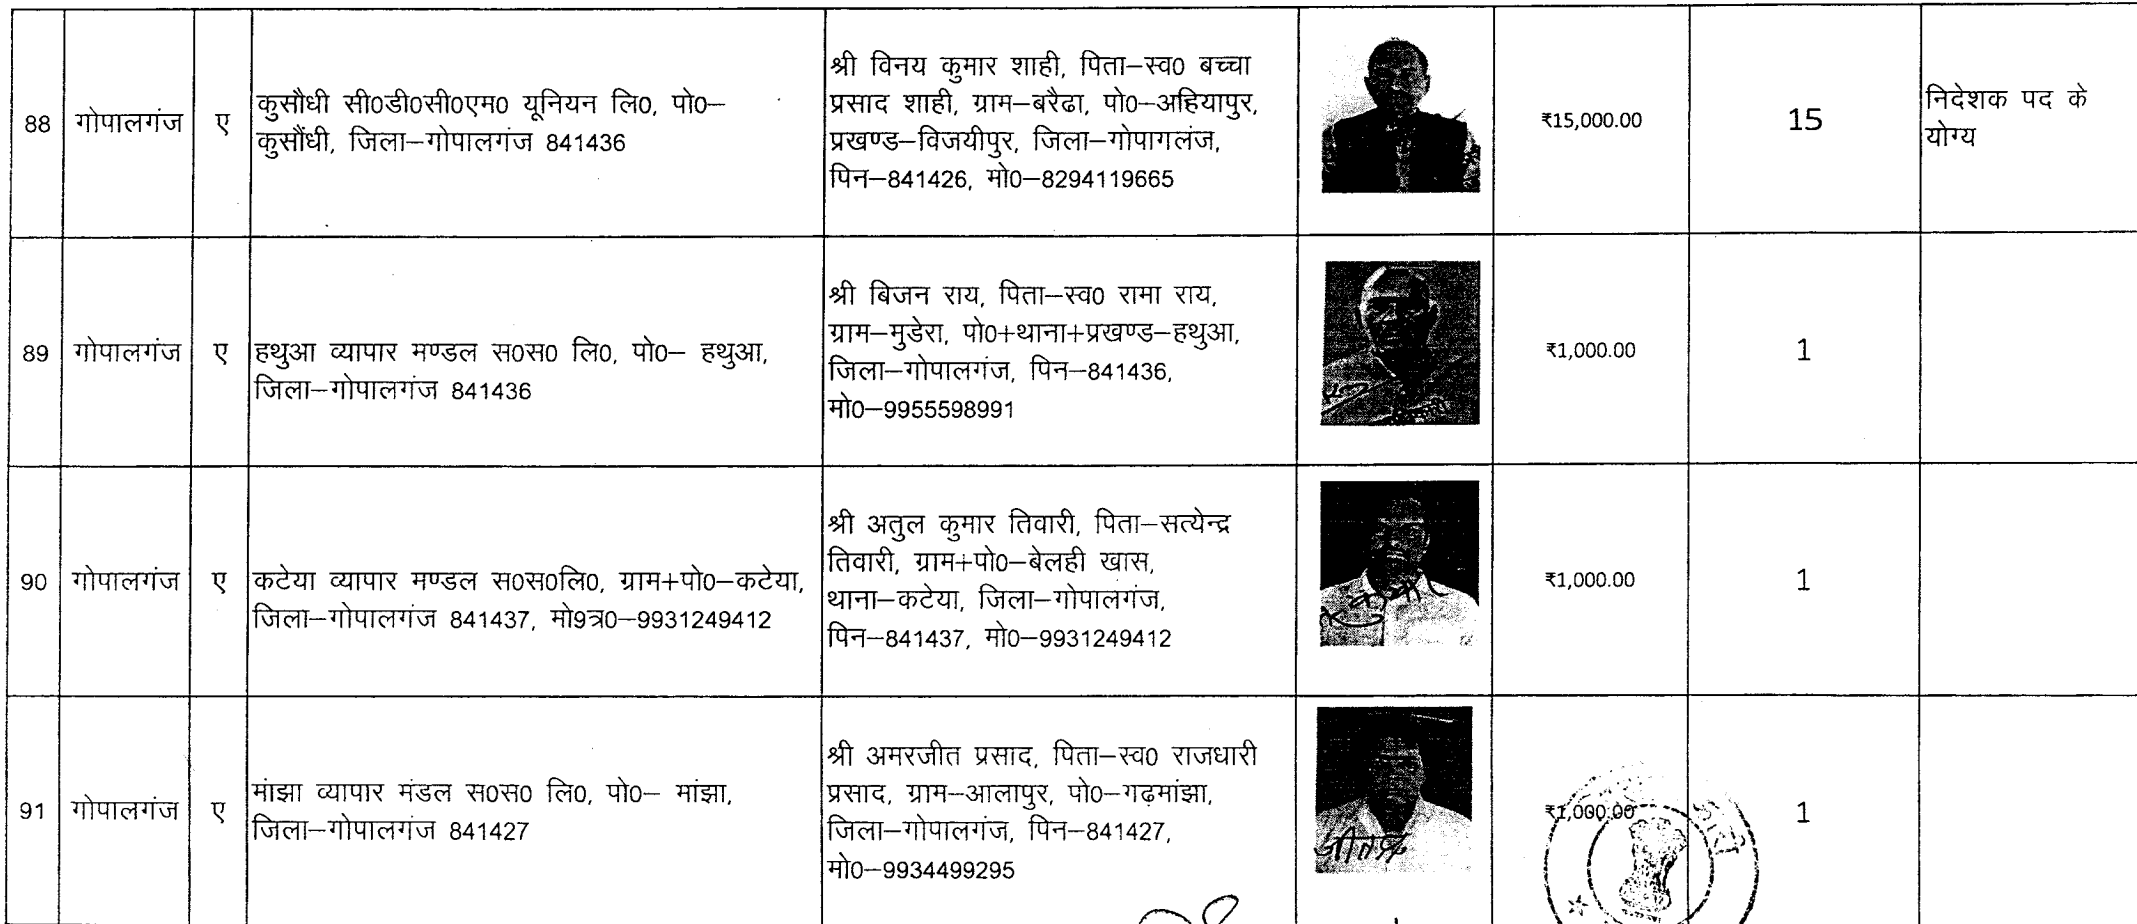 88 गोपालगंज ए कुसौधी सी0डी0सी0एम0 यूनियन लि0, पो0–
कुसौंधी, जिला–गोपालगंज 841436
श्री विनय कुमार शाही, पिता–स्व0 बच्चा
प्रसाद शाही, ग्राम–बरैढा, पो0–अहियापुर,
प्रखण्ड–विजयीपुर, जिला–गोपागलंज,
पिन–841426, मो0–8294119665
₹15,000.00
15
निदेशक पद के
योग्य
89 गोपालगंज ए हथुआ व्यापार मण्डल स0स0 लि0, पो0– हथुआ,
जिला–गोपालगंज 841436
श्री बिजन राय, पिता–स्व0 रामा राय,
ग्राम–मुडेरा, पो0+थाना+प्रखण्ड–हथुआ,
जिला–गोपालगंज, पिन–841436,
मो0–9955598991
₹1,000.00
1
90 गोपालगंज ए कटेया व्यापार मण्डल स0स0लि0, ग्राम+पो0–कटेया,
जिला–गोपालगंज 841437, मो9त्र0–9931249412
श्री अतुल कुमार तिवारी, पिता–सत्येन्द्र
तिवारी, ग्राम+पो0–बेलही खास,
थाना–कटेया, जिला–गोपालगंज,
पिन–841437, मो0–9931249412
₹1,000.00
1
91 गोपालगंज ए मांझा व्यापार मंडल स0स0 लि0, पो0– मांझा,
जिला–गोपालगंज 841427
श्री अमरजीत प्रसाद, पिता–स्व0 राजधारी
प्रसाद, ग्राम–आलापुर, पो0–गढ़मांझा,
जिला–गोपालगंज, पिन–841427,
मो0–9934499295
₹1,000.00
1